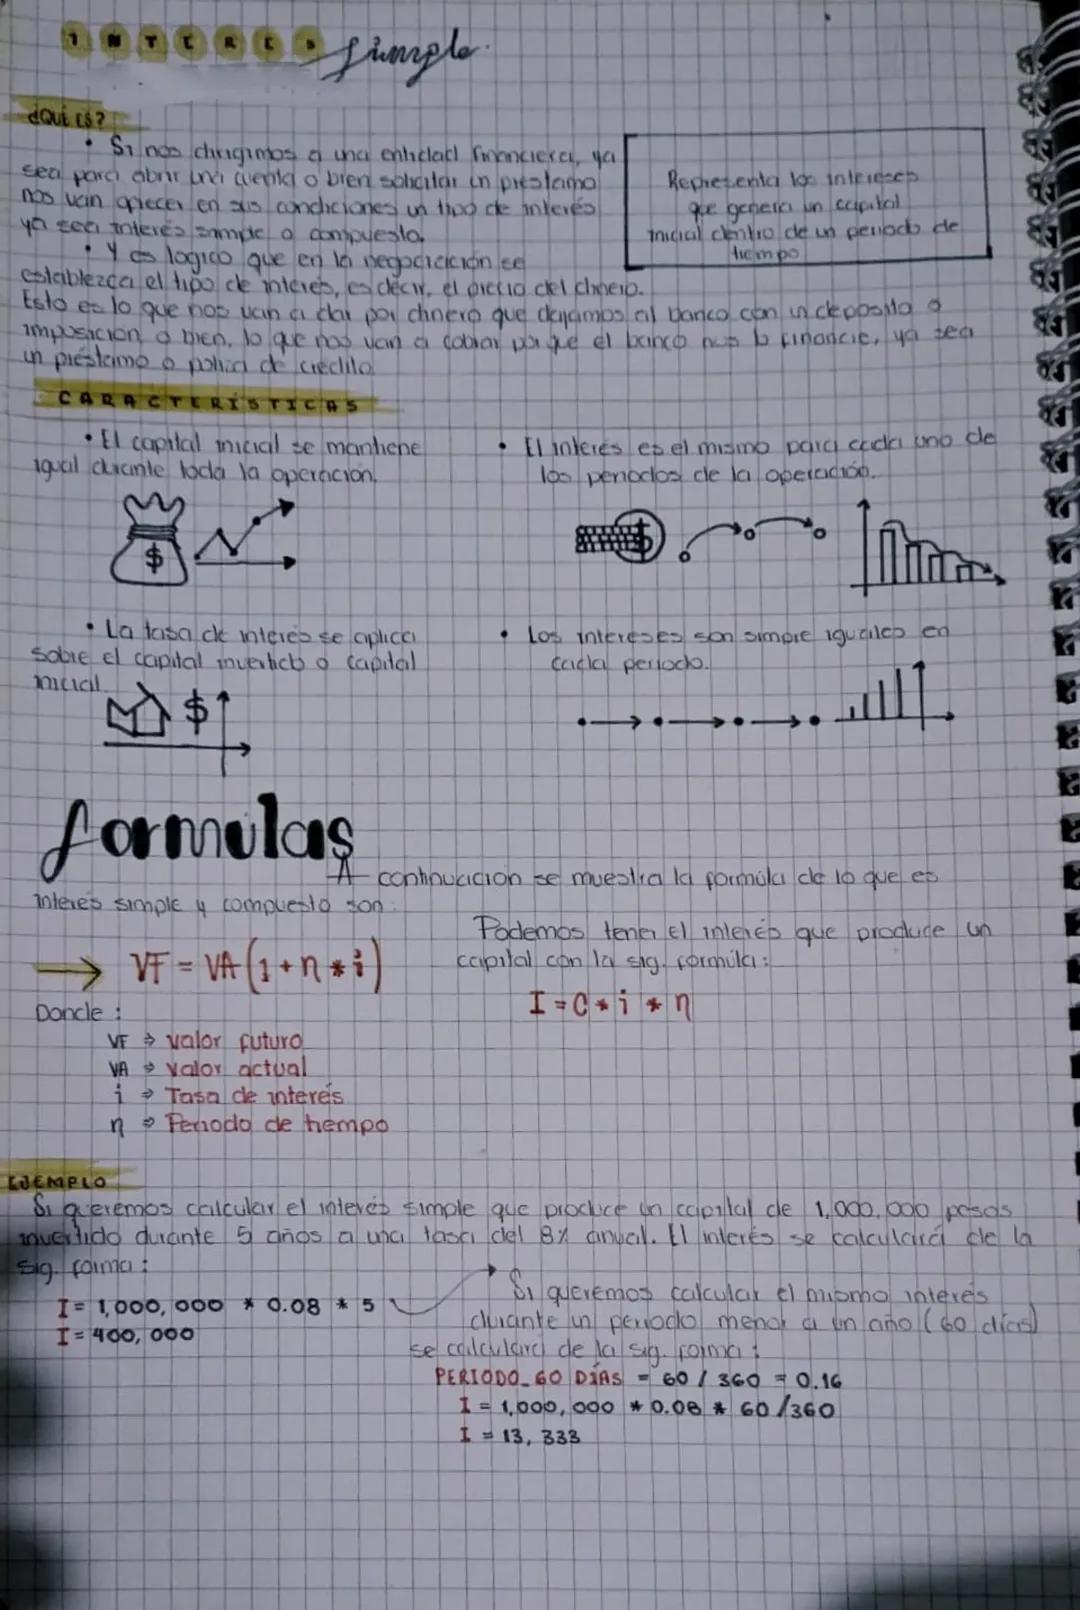 INTERES Simple.
¿QUÉ ES?
• Si nos dirigimos a una entidad financiera, ya
sea para abrir una cuenta o bien solicitar un préstamo
nos van ofrecer en sus condiciones un tipo de interés
ya sea interés simple o compuesto.
• Y es logico que en la negociación se
establezca el tipo de interés, es decir, el precio del dinero.
Esto es lo que nos van a dar por dinero que dejamos al banco con un deposito o
imposición o bien, lo que nos van a cobrar porque el banco nos lo financie, ya sea
un préstamo o poliza de crédito
Representa los intereses
que genera un capital
inicial dentro de un periodo de
tiempo
CARACTERÍSTICAS
• El capital inicial se mantiene
igual durante toda la operación.
• El interés es el mismo para cada uno de
los periodos de la operación.
$
$
• La tasa de interés se aplica
sobre el capital invertido o capital
inicial
• Los intereses son simpre iguales en
cada periodo.
$
formulas
A continuación se muestra la formula de lo que es
interés simple y compuesto son:
→ VF = VA (1 + n * i)
Donde :
VF ⇒ valor futuro
VA ⇒ valor actual
i ⇒ Tasa de interés
n ⇒ Periodo de tiempo
Podemos tener el interés que produce un
capital con la sig. formula:
I = C * i * n
EJEMPLO
Si queremos calcular el interés simple que produce un capital de 1,000,000 pesos
invertido durante 5 años a una tasa del 8% anual. El interés se calculará de la
sig. forma :
I = 1,000,000 * 0.08 * 5
I = 400,000
Si queremos calcular el mismo interés
durante un periodo menor a un año (60 días)
se calculará de la sig. forma :
PERIODO_60 DÍAS = 60 / 360 = 0.16
I = 1,000,000 * 0.08 * 60/360
I = 13,333